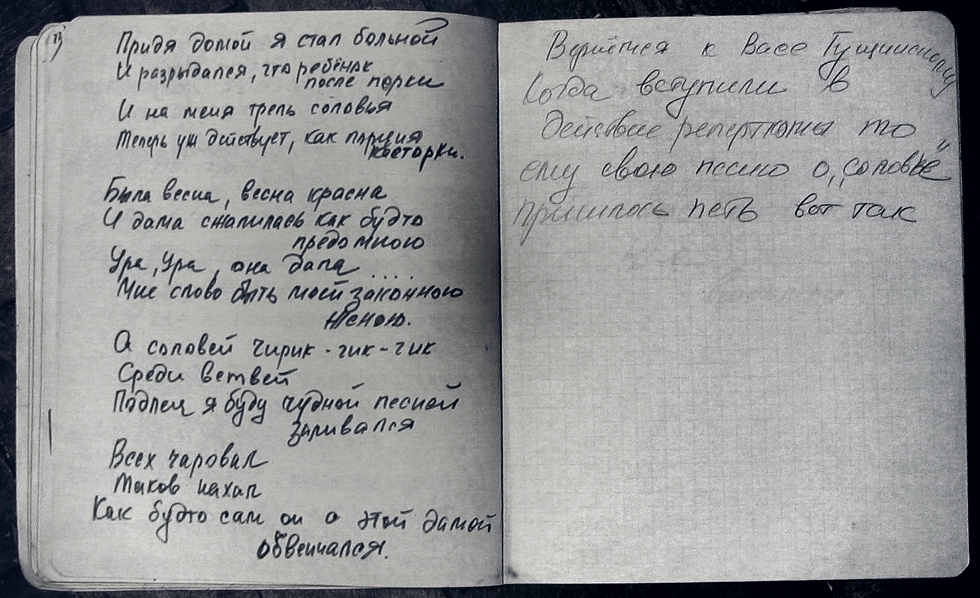 Придя домой я стал больной
И разрыдался, что ребёнок
после порки
И на меня трель соловья
Теперь уж действует, как порция
касторки.
Была весна, весна красна
И дама сжалилась как будто
предо мною
Ура, Ура, она дала ....
Мне слово быть моей законною
женою.
А соловей чирик-чик-чик
Среди ветвей
Подлец я буду чудной песней
заливался
Всех чаровал
Каков нахал
Как будто сам он с этой дамой
обвенчался.
Вернёмся к Васе Гущинскому
Когда вступили в
действие реперткомы то
ему свою песню о „соловье"
пришлось петь вот так